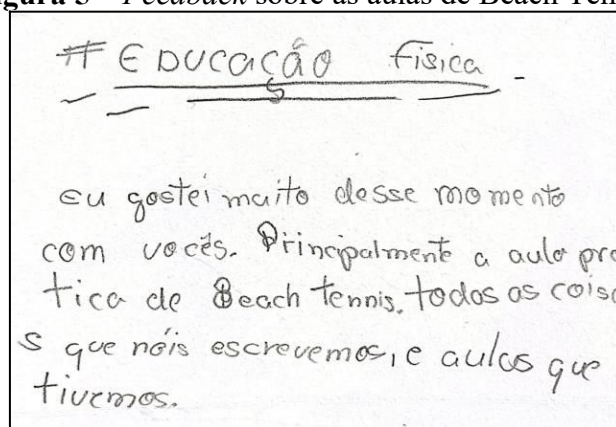 gura 3 – Feedback sobre as aulas de Beach Ten
# EDUCAÇÃO física -
Eu gostei muito desse momento
com vocês. Principalmente a aula pra
tica de Beach tennis. todas as coisa
s que nóis escrevemos, e aulas que
tivemos.